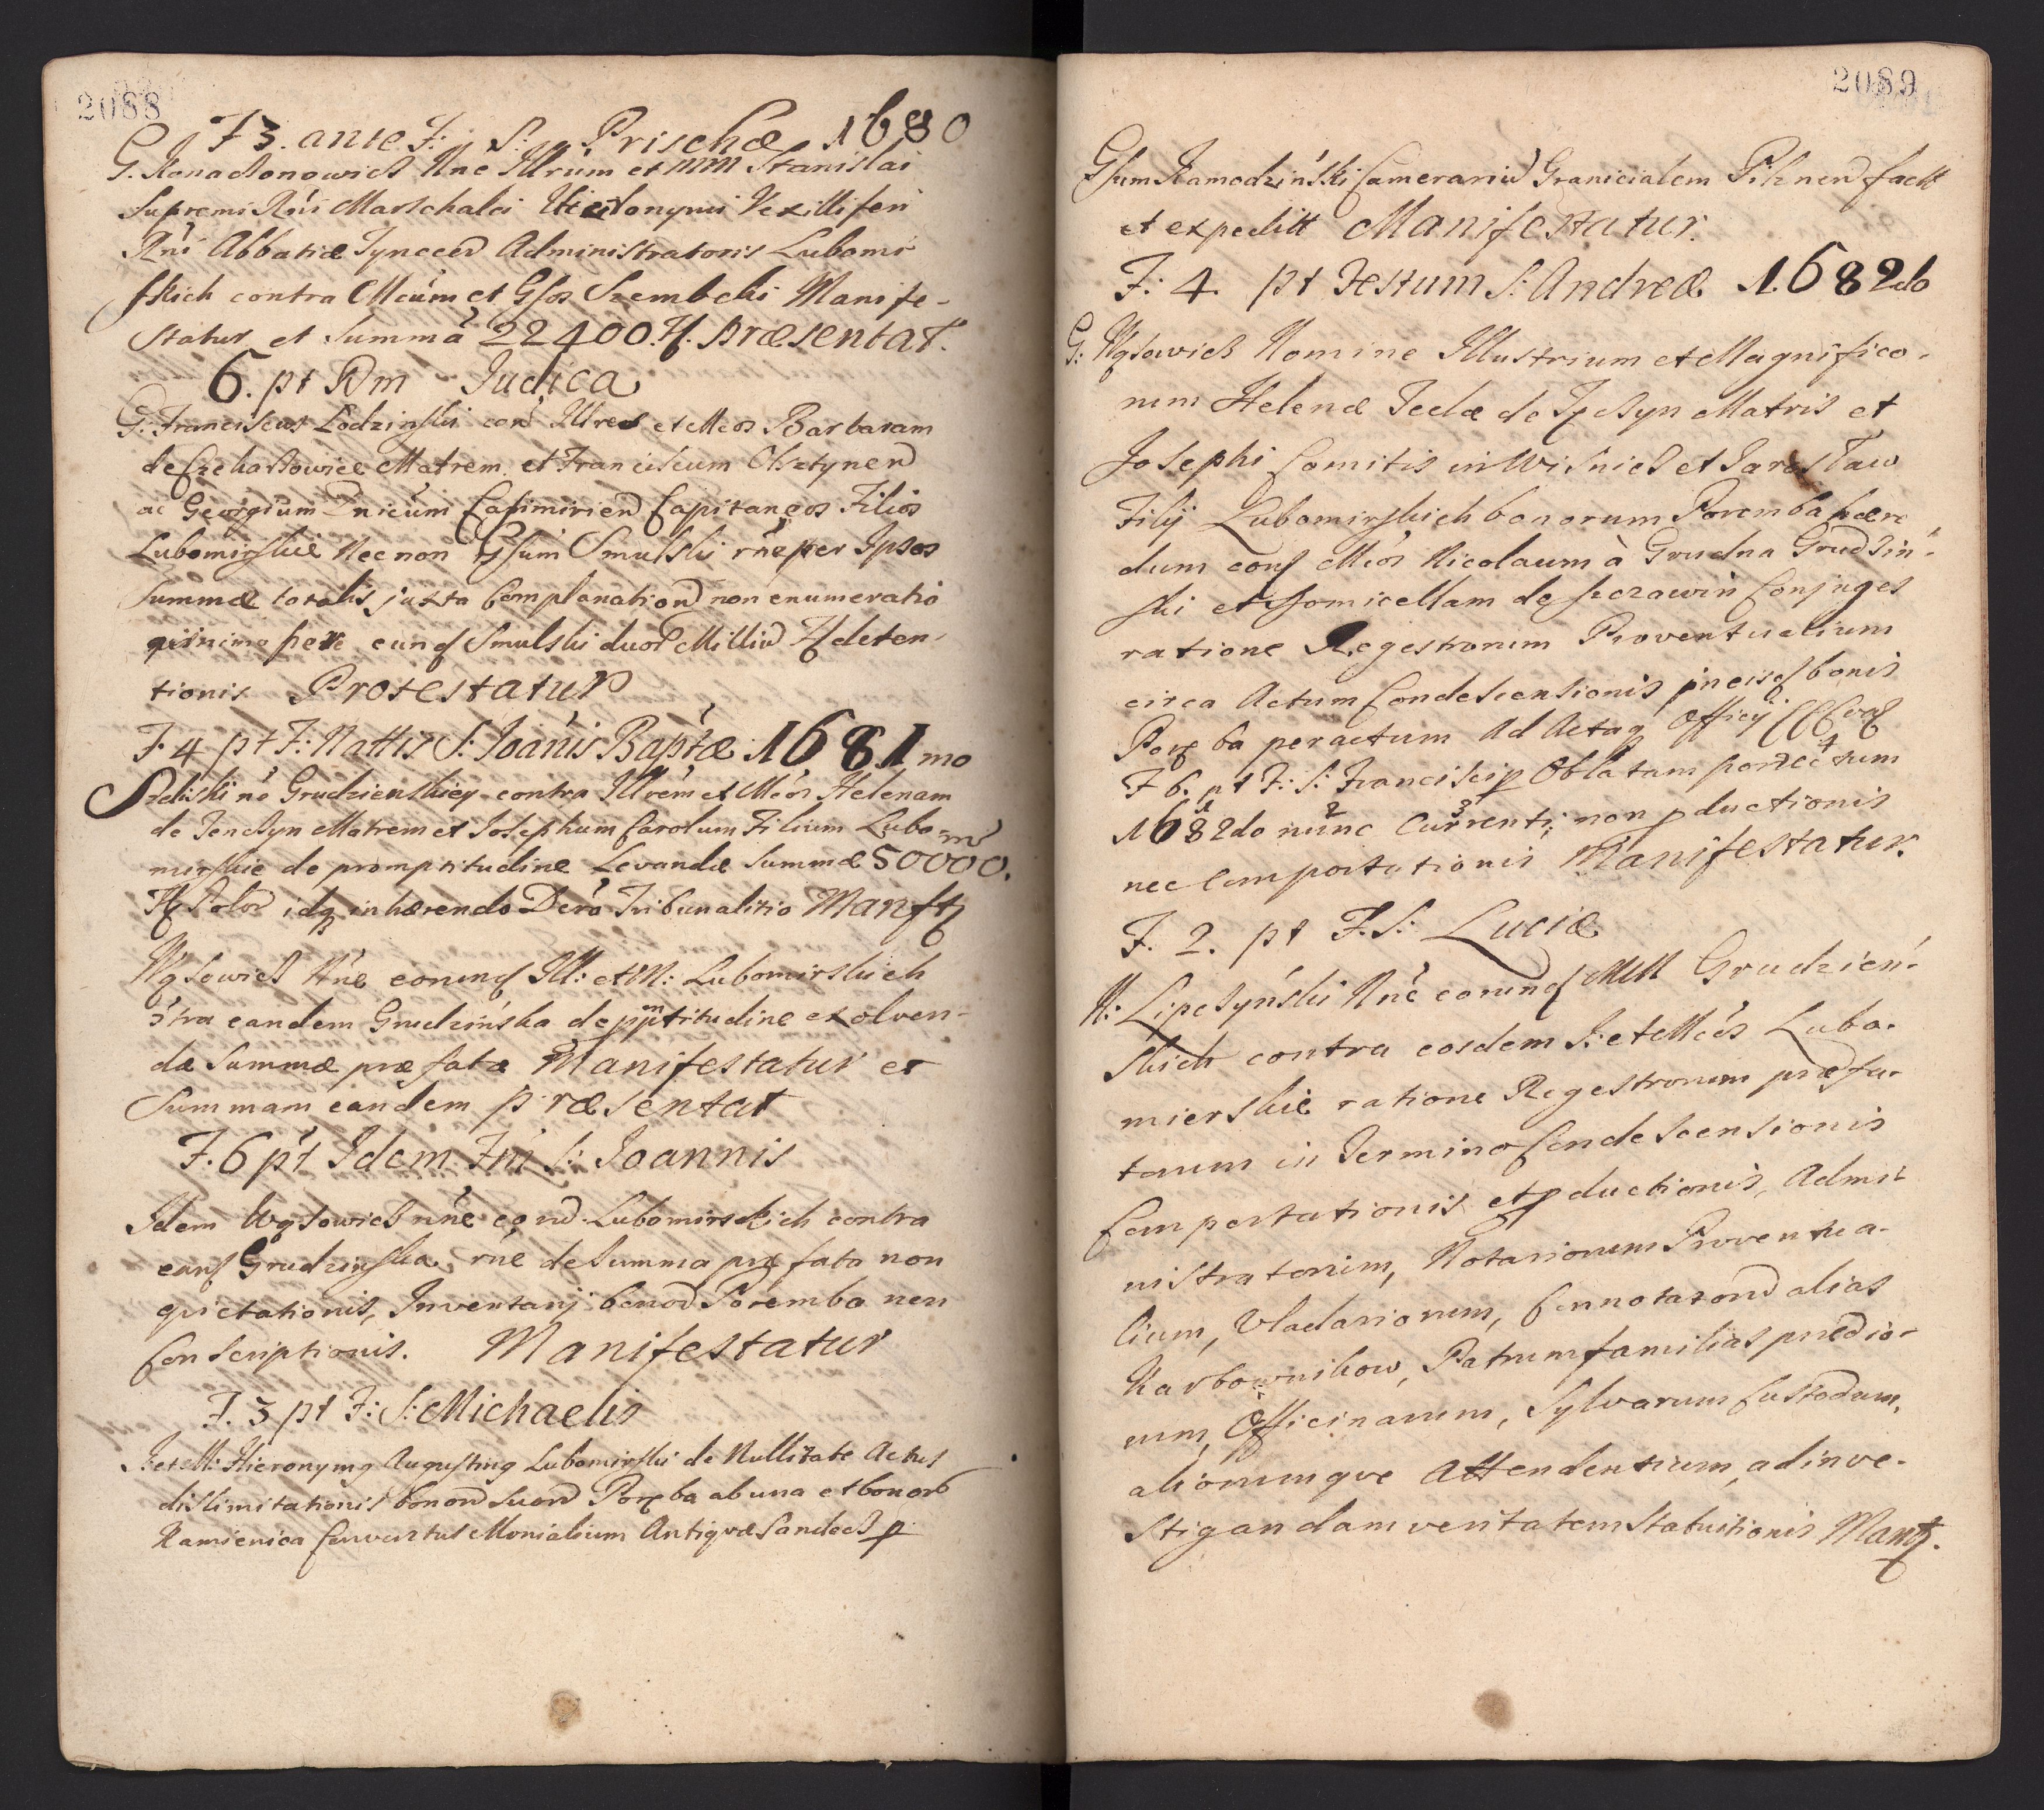 2088
F 3. ante F: S: Prischæ 1680
G. Konachonowicz Nne Illrium et MM Stanislai
Supremi Rni Marschalci Hieronymi Vexilliferi
Rni Abbatiæ Tynecen Administratoris Lubomir
skich contra Mcum et Gsos Szembeki Manife-
statur et Summa 22400. fl. præsentat.
6. pt Dm Judica
G: Franciscus Lodzinski con Illres et Mcos Barbaram
de Matrem et Franciscum Olsztynen
ac Georgium Dnicum Casimirien Capitaneos Filios
Lubomirskie Nec non Gsum Smulski rne per Ipsos
Summæ totalis juxta Complanation non enumeratio
quinimo per eunq Smulski duor Milliu fl deten-
tionis Protestatur
F 4 pt F: Nattis S: Joanis Baptæ 1681mo
no Grudzienskiey contra Illrem et Mcos Helenam
de Tenczyn Matrem et Josephum Carolum Filium Lubo-
mirskie de promptitudine Levandæ Summæ 50000.
fl Polor idq inhærendo Dcro Tribunalitio Manftr
Wąsowicz Nne eorunq Ill: et M: Lubomirskich
ctra eandem Grudzińska de pptitudine exolven-
dæ Summæ præfatæ Manifestatur et
Summam eandem præsentat
F. 6 pt Idem Ftu S: Joannis
Idem Wąsowicz nne eord Lubomirskich contra
eanq Grudzinska rne de Summa præfata non
quietationis, Inventarij bonor Poremba non
Conscriptionis. Manifestatur
F. 3 pt F: S: Michaelis
J. et M: Hieronymq Augustinq Lubomirski de Nullitate Actus
dislimitationis bonor suor Poręba ab una et bonor
Kamienica Conventus Monialium Antiquæ Sandecz p
2089
Gsum Ramodziński Camerariu Granicialem Pilznen fact
et expedit Manifestatur.
F: 4. pt Festum S: Andreæ 1682do
G: Wąsowicz Nomine Illustrium et Magnifico-
rum Helenæ Teclæ de Tęczyn Matris et
Josephi Comitis in Wisnicz et Jarosław
Filij Lubomirskich bonorum Poremba hære
dum conq Mcos Nicolaum à Grudna Grudzin-
ski et Domicellam de Szczawin Conjuges
ratione Regestrorum Proventualium
circa Actum Condescensionis in eisq bonis
Poręba peractum Ad Acta Officij
F 6. pt F: S: Francisci Oblatum porrectum
1682do nunc Currenti; non pductionis
nec Comportationis Manifestatur.
F. 2. pt F. S: Luciæ
M: Lipczyński Nne eorunq MM Grudzień-
skich contra eosdem J: et Mcos Lubo-
mierskie ratione Regestrorum præfa-
torum in Termino Condescensionis
Comportationis et pductionis, Admi-
nistratorum, Notariorum Proventua-
lium, Vladariorum, Connotator alias
Karbowników, Patrumfamilias prædio-
rum, Officinarum, Sylvarum Custodum,
aliorumque Attendentium, ad inve-
stigandam veritatem statuitionis Manftr.